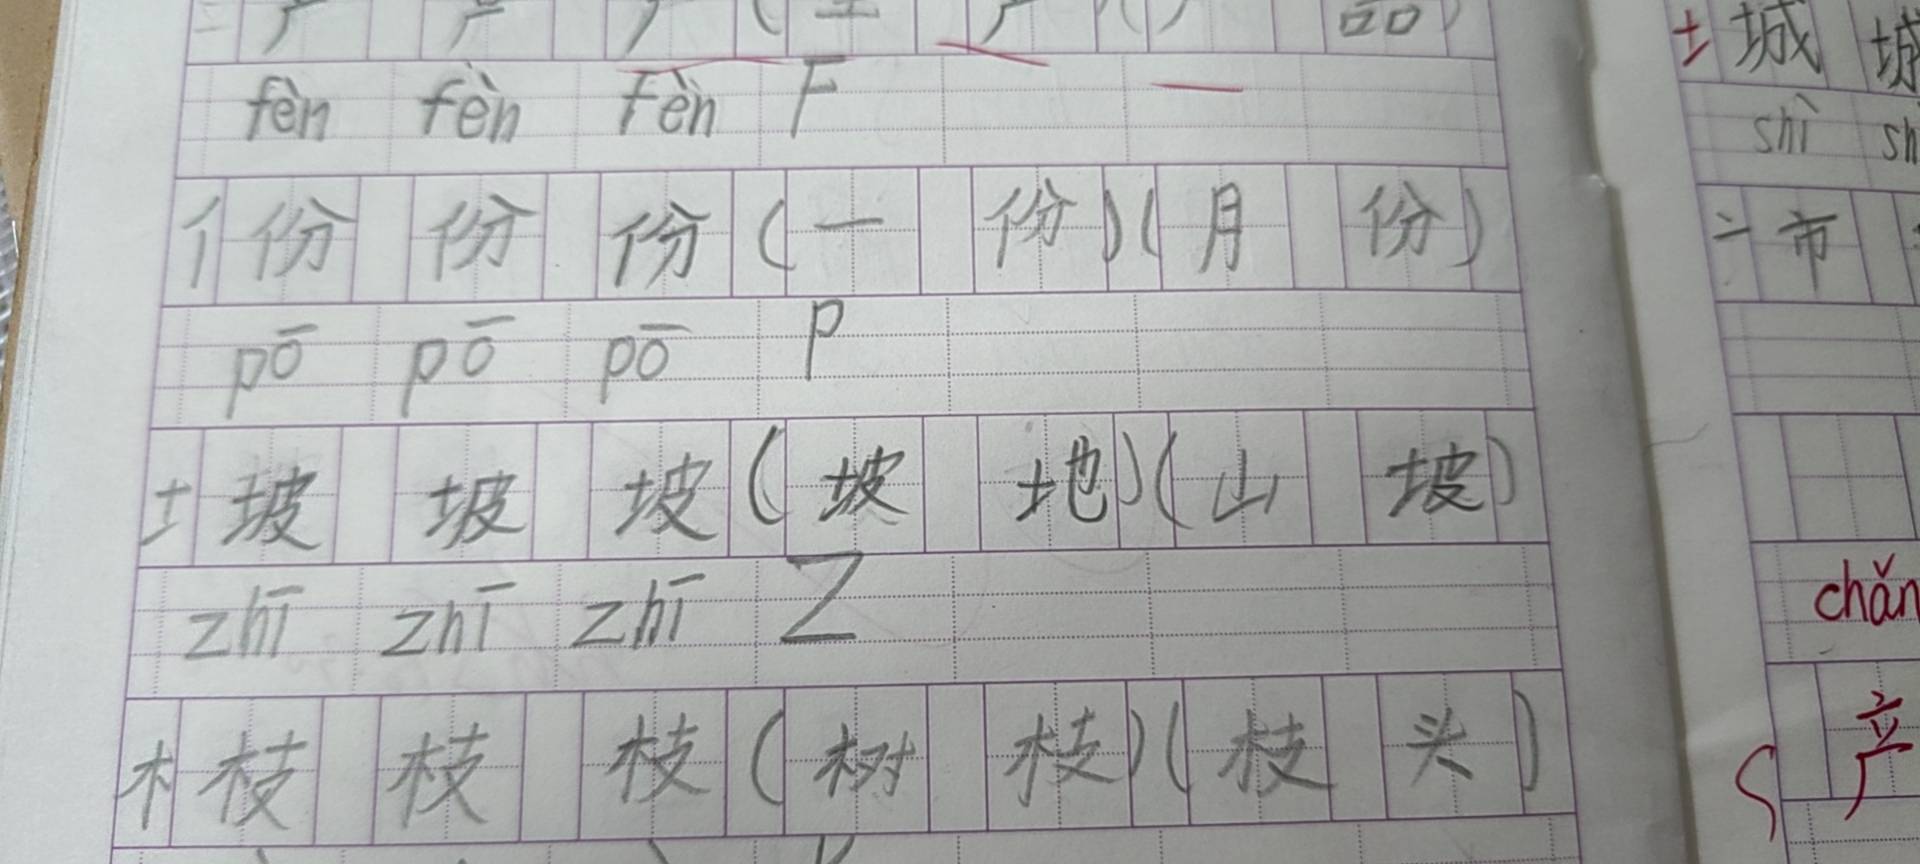 产 产 产 ( 生 产 ) ( 产 品 )
fèn fèn fèn F
亻 份 份 份 ( 一 份 ) ( 月 份 )
pō pō pō P
土 坡 坡 坡 ( 坡 地 ) ( 山 坡 )
zhī zhī zhī Z
木 枝 枝 枝 ( 树 枝 ) ( 枝 头 )
土 城 城
shì sh
亠 市
chǎn
产